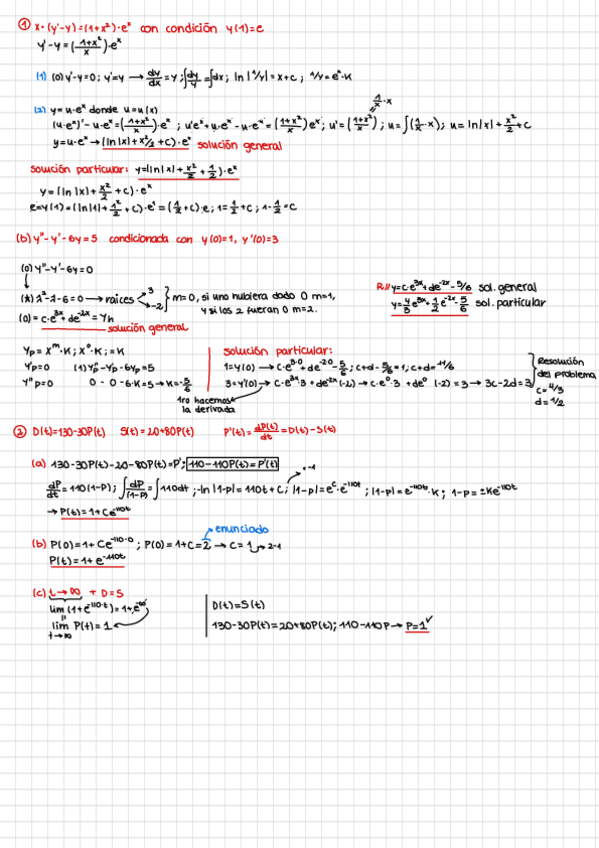 ① x·(y'-y)=(1+x²)·eˣ con condición y(1)=e
y'-y=(1+x²/x)·eˣ
(1) (0) y'-y=0; y'=y → dy/dx=y; ∫dy/y=∫dx; ln|y|=x+c; y=eˣ·K
1/x·x
(2) y=u·eˣ donde u=u(x)
(u·eˣ)'-u·eˣ=(1+x²/x)·eˣ; u'eˣ+u·eˣ-u·eˣ=(1+x²/x)eˣ; u'=(1+x²/x); u=∫(1/x·x); u=ln|x|+x²/2+C
y=u·eˣ → (ln|x|+x²/2+C)·eˣ solución general
solución particular: y=(ln|x|+x²/2+1/2)·eˣ
y=(ln|x|+x²/2+C)·eˣ
e=y(1)=(ln|1|+1²/2+C)·e¹=(1/2+C)·e; 1=1/2+C; 1-1/2=C
(b) y''-y'-6y=5 condicionada con y(0)=1, y'(0)=3
(0) y''-y'-6y=0
(*) λ²-λ-6=0 → raíces 3 -2 } m=0, si uno hubiera dado 0 m=1,
y si los 2 fueran 0 m=2.
(0)=c·e³ˣ+de⁻²ˣ=Yh
solución general
R// y=c·e³ˣ+de⁻²ˣ-5/6 sol. general
y=4/3e³ˣ+1/2e⁻²ˣ-5/6 sol. particular
Yp=xᵐ·K; x⁰·K;=K
Y'p=0 (1) Y''p-Y'p-6yp=5
Y''p=0 0-0-6·K=5 → K=-5/6
solución particular:
1=y(0) → c·e³·⁰+de⁻²·⁰-5/6; c+d-5/6=1; c+d=11/6
3=y'(0) → c·e³ˣ·3+de⁻²ˣ(-2) → c·e⁰·3+de⁰(-2)=3 → 3c-2d=3
1ro hacemos
la derivada
Resolución
del problema
c=4/3
d=1/2
② D(t)=130-30P(t) S(t)=20+80P(t) P'(t)=dP(t)/dt=D(t)-S(t)
(a) 130-30P(t)-20-80P(t)=P'; 110-110P(t)=P'(t)
·-1
dP/dt=110(1-P); ∫dP/(1-P)=∫110dt; -ln|1-p|=110t+C; |1-p|=eᶜ·e⁻¹¹⁰ᵗ; |1-p|=e⁻¹¹⁰ᵗ·K; 1-p=±Ke⁻¹¹⁰ᵗ
→ P(t)=1+Ce⁻¹¹⁰ᵗ
enunciado
(b) P(0)=1+Ce⁻¹¹⁰·⁰; P(0)=1+C=2 → C=1 → 2-1
P(t)=1+e⁻¹¹⁰ᵗ
(c) t→∞ + D=S
lim(1+e⁻¹¹⁰·ᵗ)=1+e⁻∞
lim P(t)=1
t→∞
D(t)=S(t)
130-30P(t)=20+80P(t); 110-110P → P=1 ✓